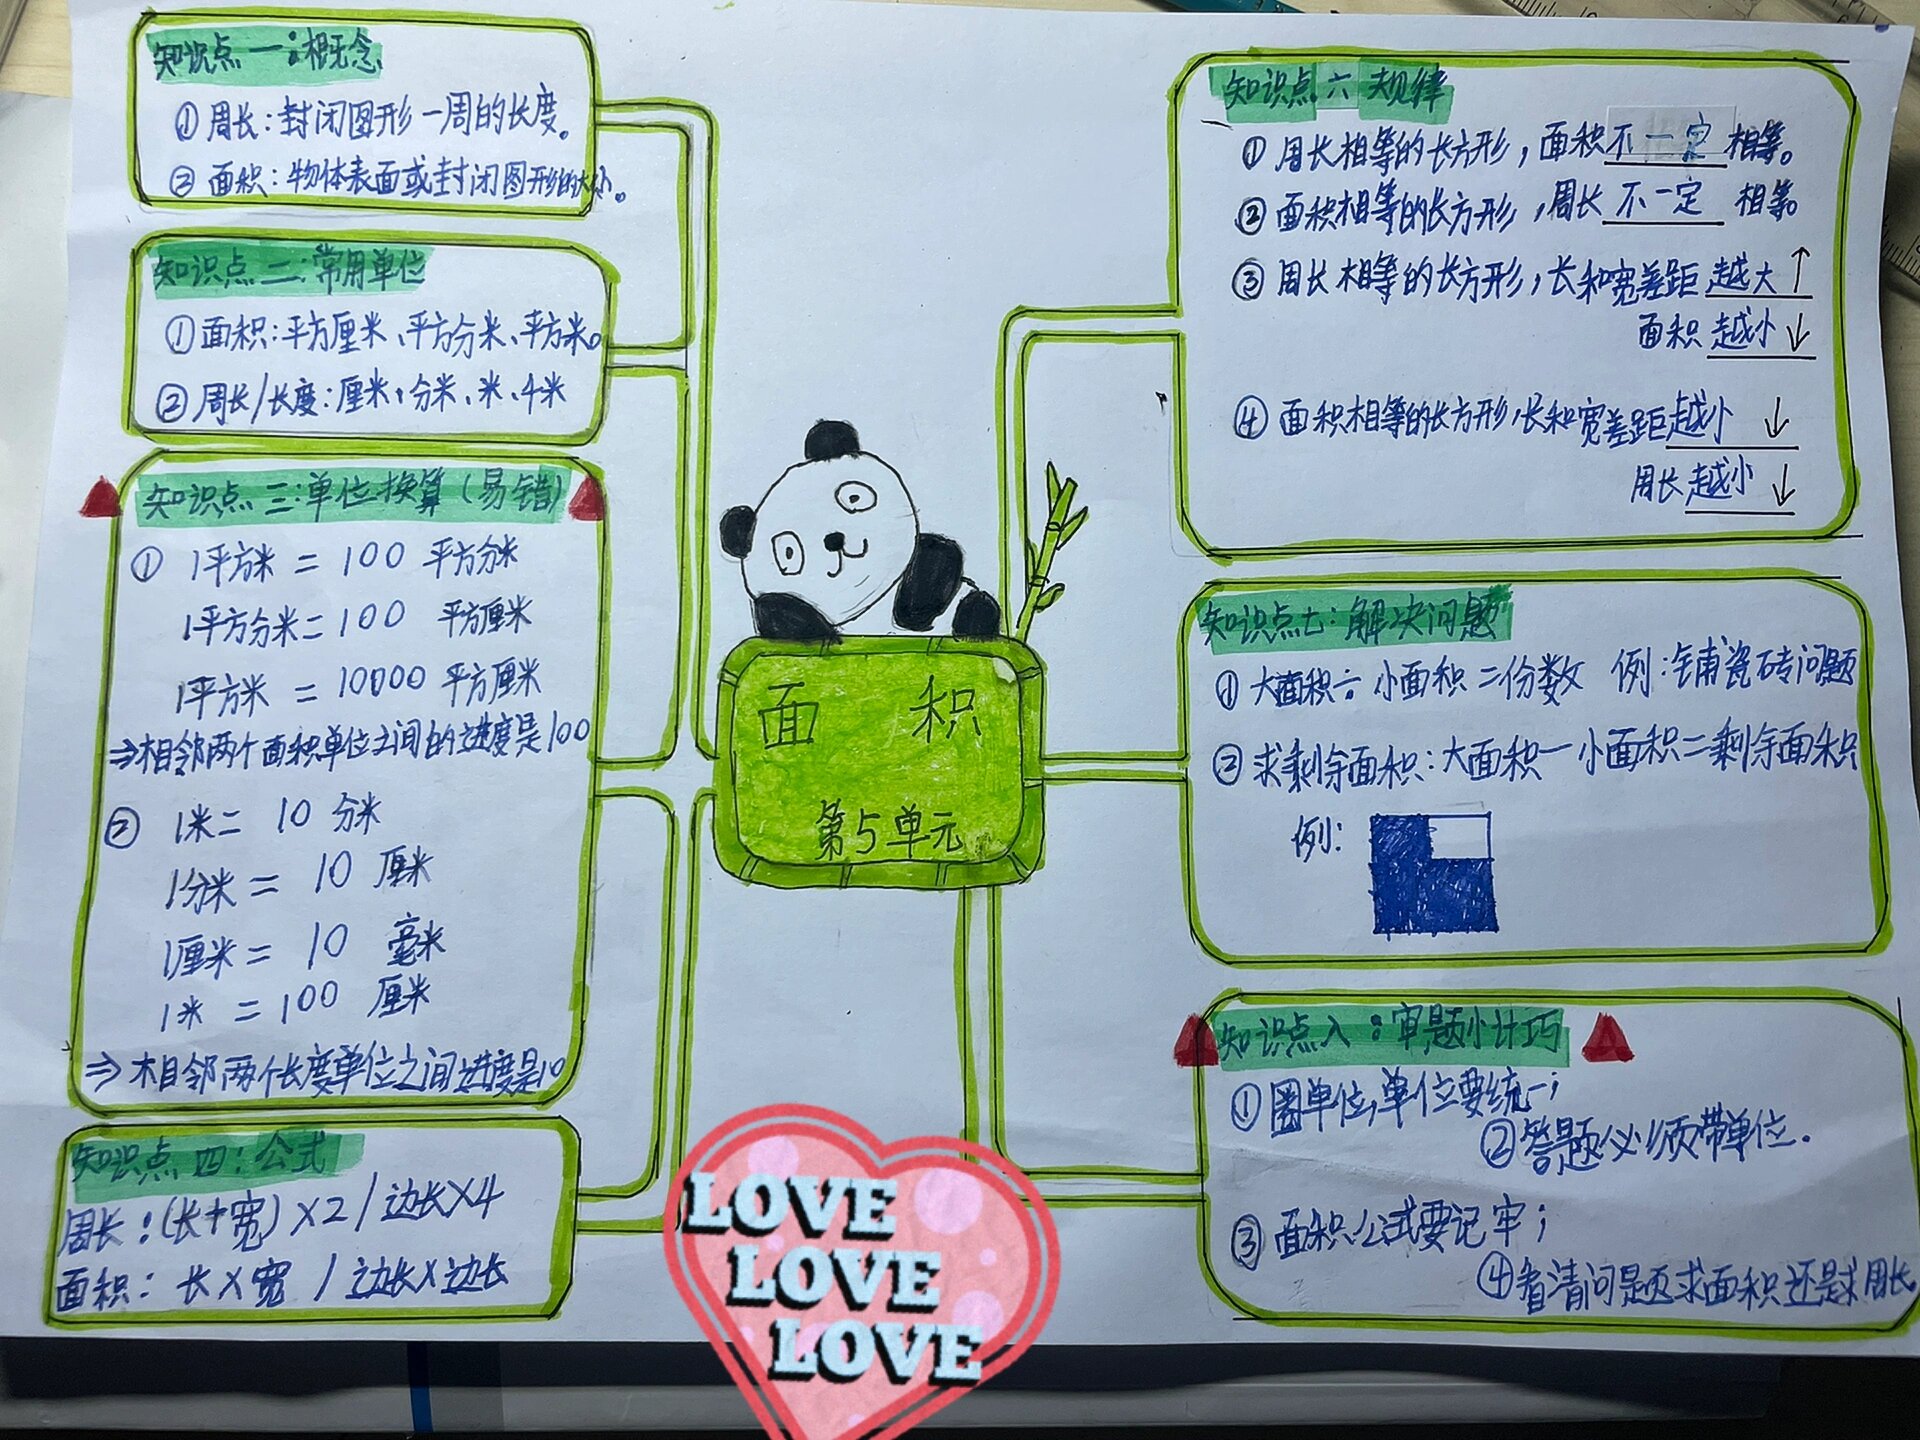 知识点一:概念
①周长:封闭图形一周的长度。
②面积:物体表面或封闭图形的大小。
知识点二:常用单位
①面积:平方厘米、平方分米、平方米。
②周长/长度:厘米、分米、米、千米
知识点三:单位换算(易错)
① 1平方米 = 100 平方分米
1平方分米 = 100 平方厘米
1平方米 = 10000 平方厘米
⇒相邻两个面积单位之间的进度是100
② 1米 = 10 分米
1分米 = 10 厘米
1厘米 = 10 毫米
1米 = 100 厘米
⇒相邻两个长度单位之间进度是10
知识点四:公式
周长:(长+宽)×2 / 边长×4
面积: 长×宽 / 边长×边长
面 积
第5单元
知识点六 规律
①周长相等的长方形,面积不一定相等。
②面积相等的长方形,周长 不一定 相等。
③周长相等的长方形,长和宽差距 越大 ↑
面积 越小 ↓
④面积相等的长方形,长和宽差距越小 ↓
周长越小 ↓
知识点七:解决问题
①大面积÷小面积=份数 例:铺瓷砖问题
②求剩余面积:大面积-小面积=剩余面积
例:
知识点八:审题小计巧
①圈单位,单位要统一;
②答题必须带单位.
③面积公式要记牢;
④看清问题求面积还是求周长
LOVE
LOVE
LOVE